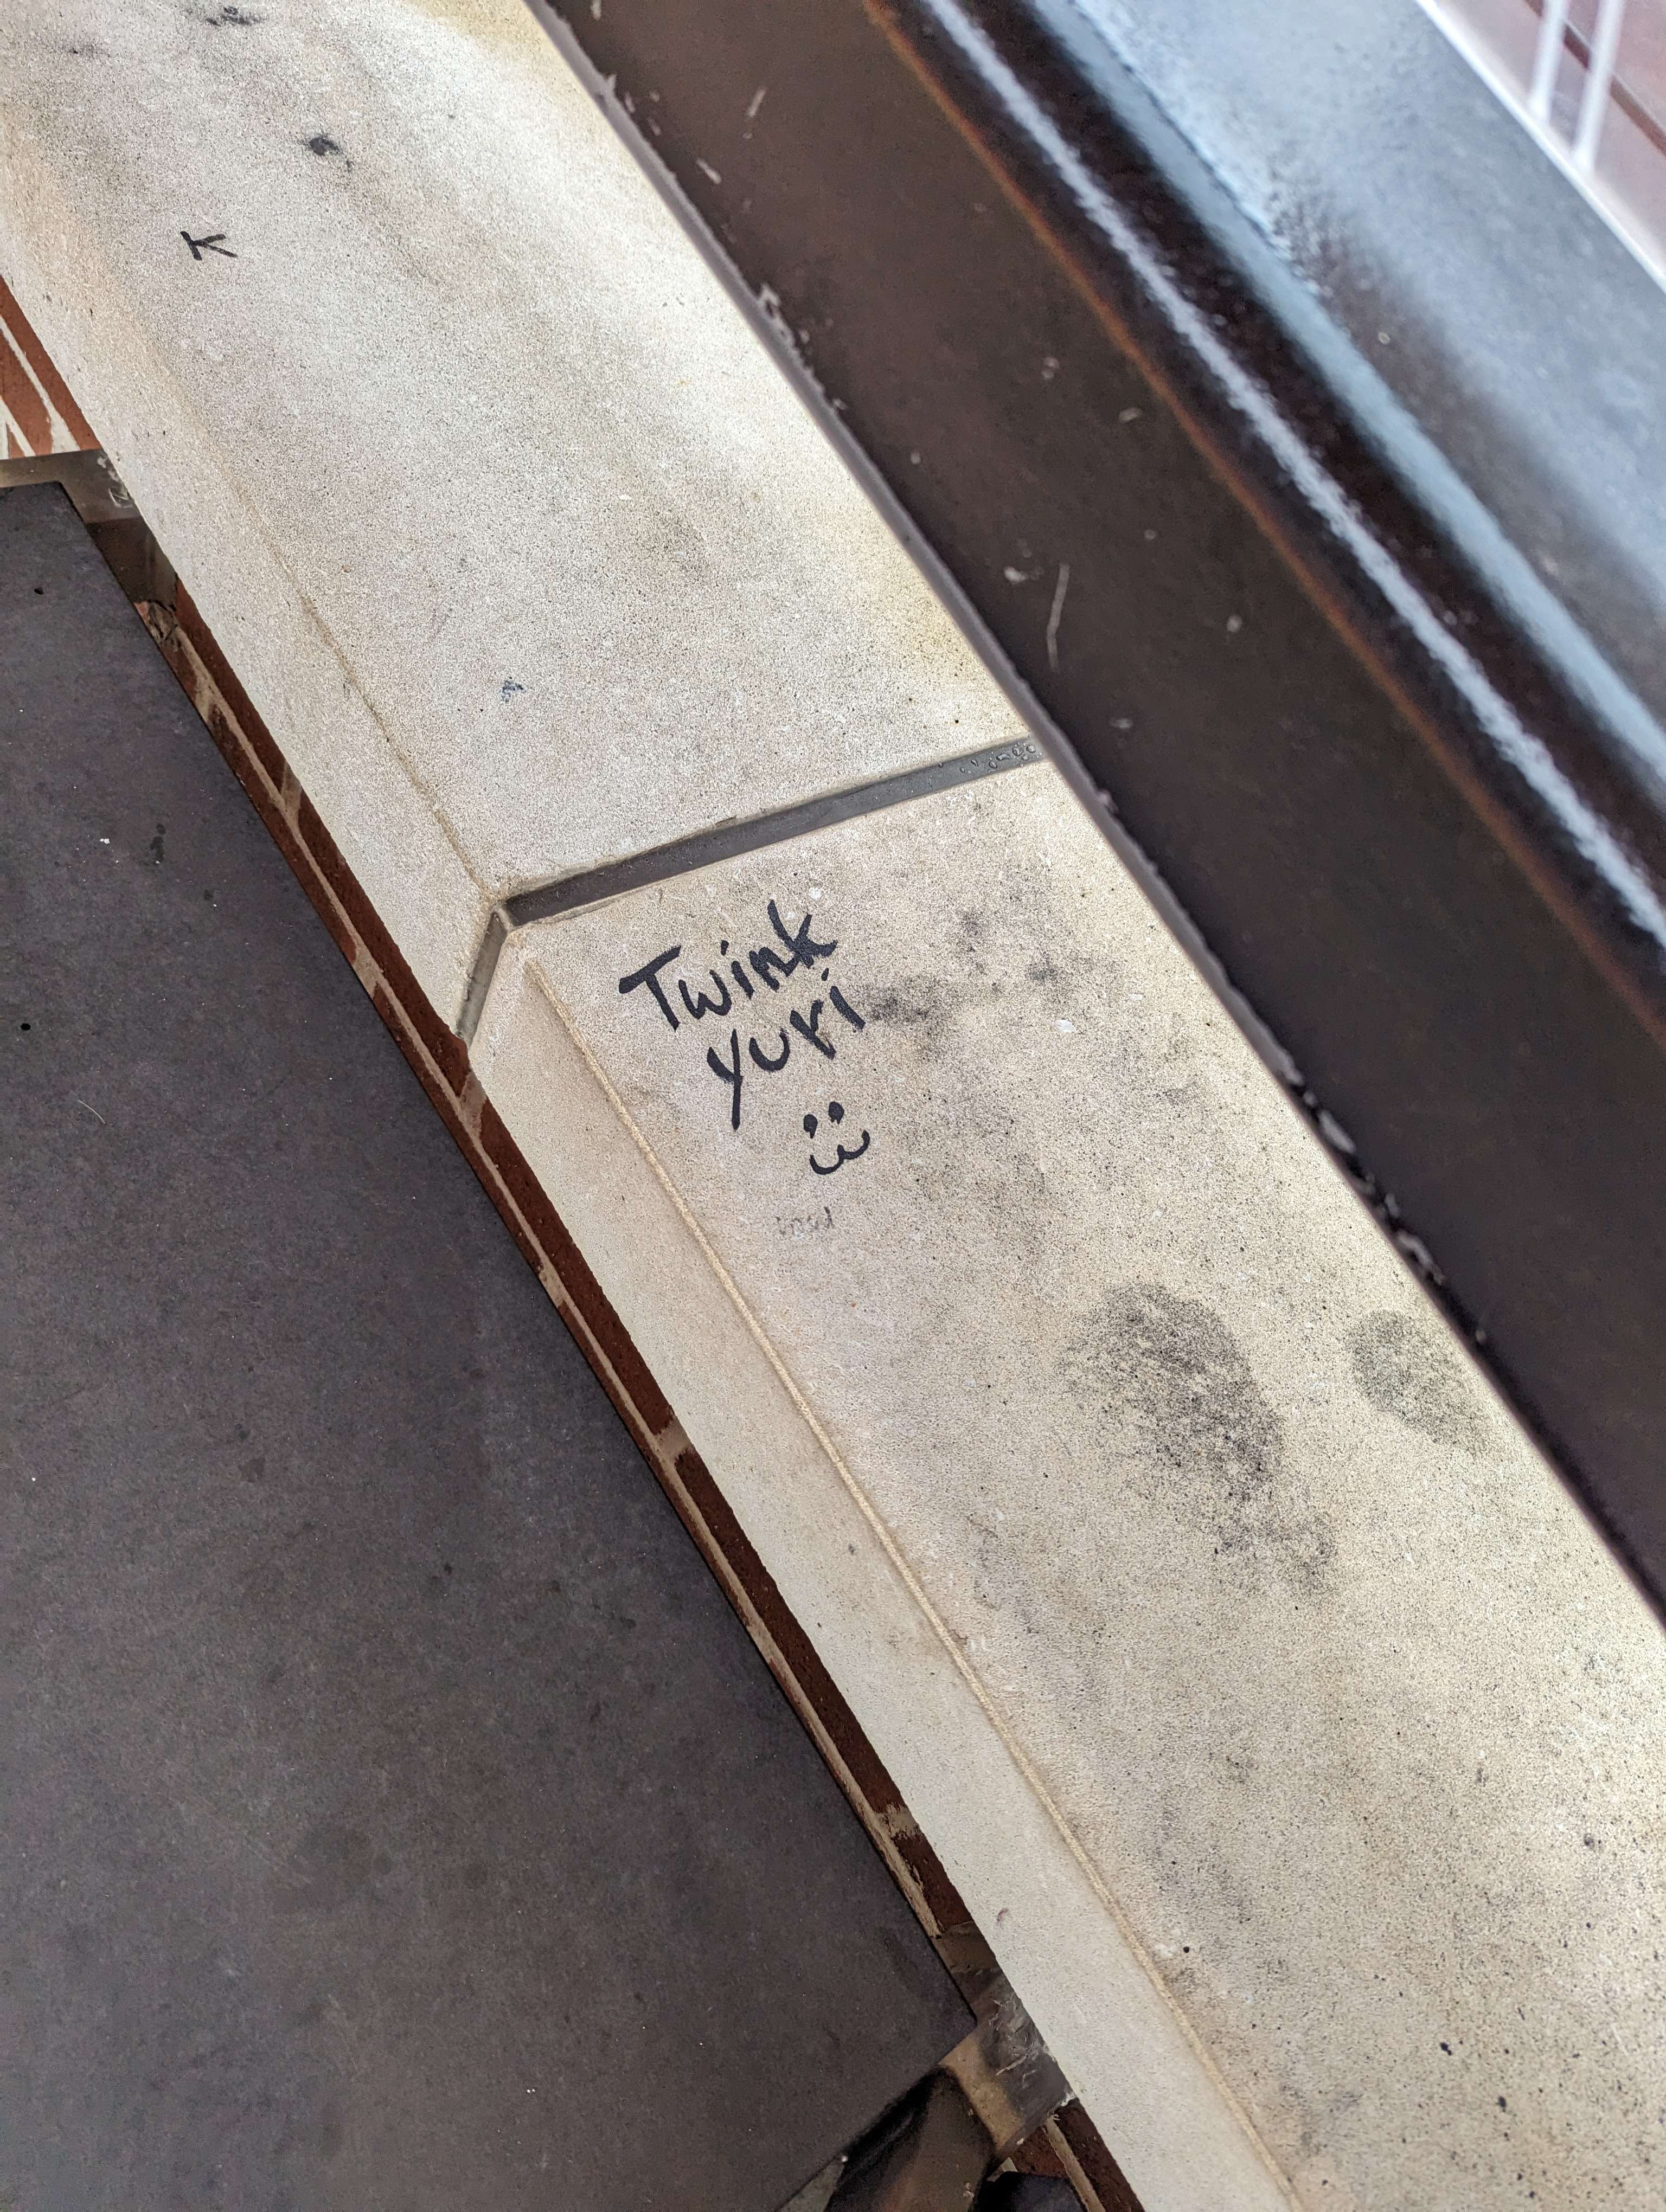 K
Twink
yuri
:3